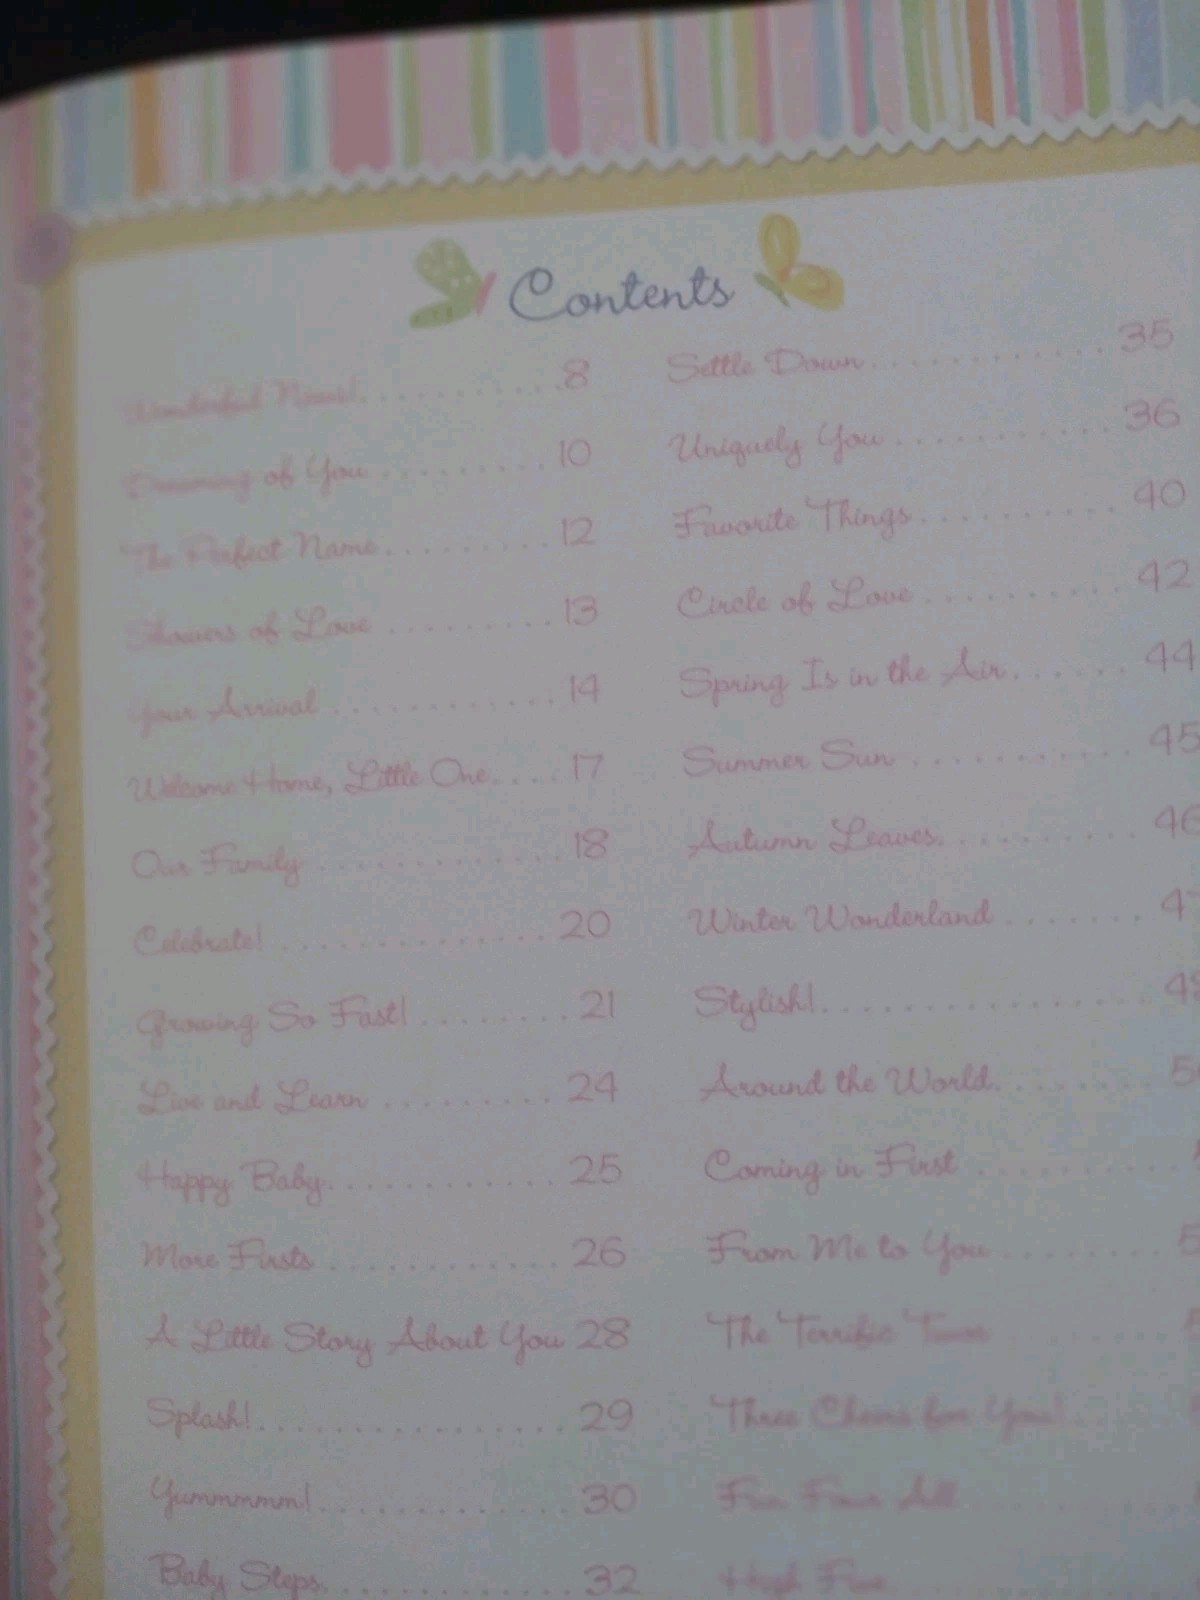 Contents
Wonderful News! 8
Dreaming of You 10
The Perfect Name 12
Showers of Love 13
Your Arrival 14
Welcome Home, Little One 17
Our Family 18
Celebrate! 20
Growing So Fast! 21
Live and Learn 24
Happy Baby 25
More Firsts 26
A Little Story About You 28
Splash! 29
Yummmmm! 30
Baby Steps 32
Settle Down 35
Uniquely You 36
Favorite Things 40
Circle of Love 42
Spring Is in the Air 44
Summer Sun 45
Autumn Leaves 46
Winter Wonderland
Stylish!
Around the World
Coming in First
From Me to You
The Terrific Twos
Three Cheers for You!
Fun Four All
High Five